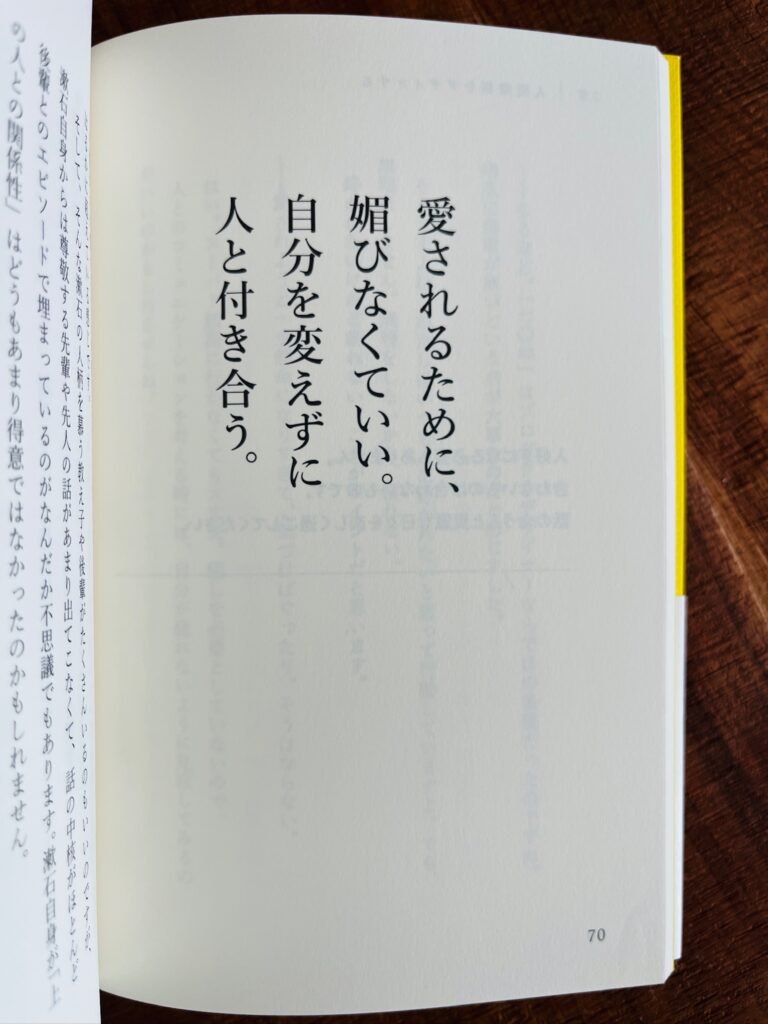 愛されるために、
媚びなくていい。
自分を変えずに
人と付き合う。
70
そして、そんな漱石の人柄を慕う教え子や後輩がたくさんいるのもいいのですが、
漱石自身からは尊敬する先輩や先人の話があまり出てこなくて、話の中核がほとんど
後輩とのエピソードで埋まっているのがなんだか不思議でもあります。漱石自身が「上
の人との関係性」はどうもあまり得意ではなかったのかもしれません。